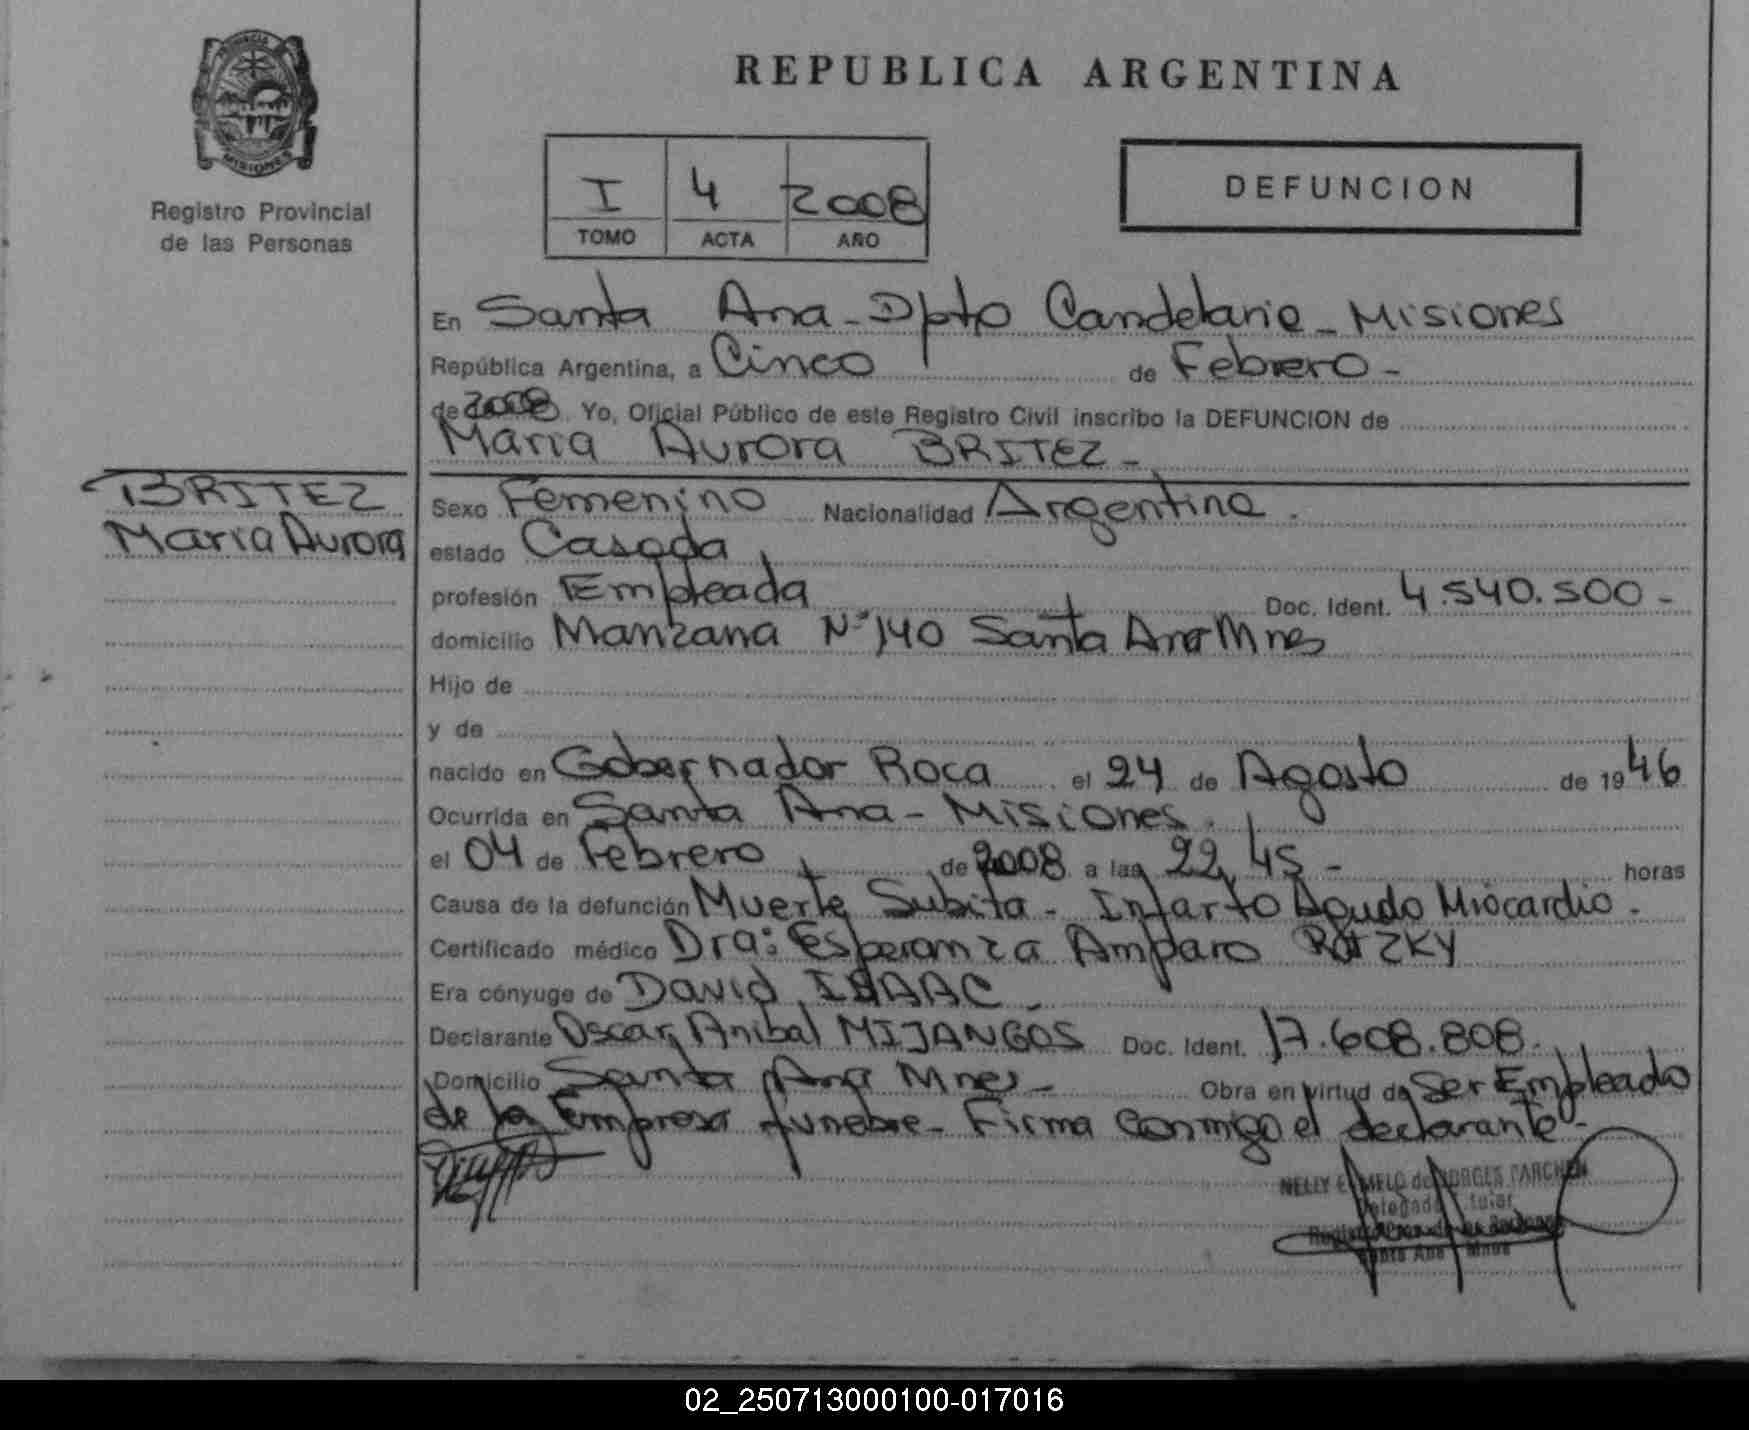 PROVINCIA
MISIONES
Registro Provincial
de las Personas
REPUBLICA ARGENTINA
I 4 2008
TOMO ACTA AÑO
DEFUNCION
En Santa Ana - Dpto Candelaria - Misiones
República Argentina, a Cinco de Febrero -
de 2008 Yo, Oficial Público de este Registro Civil inscribo la DEFUNCION de
Maria Aurora BRITEZ -
BRITEZ
Maria Aurora
Sexo Femenino Nacionalidad Argentina.
estado Casada
profesión Empleada Doc. Ident. 4.540.500 -
domicilio Manzana Nº 140 Santa Ana Mnes
Hijo de
y de
nacido en Gobernador Roca el 24 de Agosto de 1946
Ocurrida en Santa Ana - Misiones.
el 04 de Febrero de 2008 a las 22,45 - horas
Causa de la defunción Muerte Subita - Infarto Agudo Miocardio.
Certificado médico Dra: Esperanza Amparo
Era cónyuge de David ISAAC -
Declarante Oscar Anibal MIJANGOS Doc. Ident. 17.608.808.
Domicilio Santa Ana Mnes - Obra en virtud de Ser Empleado
de la Empresa funebre - Firma conmigo el declarante -
NELLY E. MELO de BORGES
Santa Ana Mnes
02_250713000100-017016